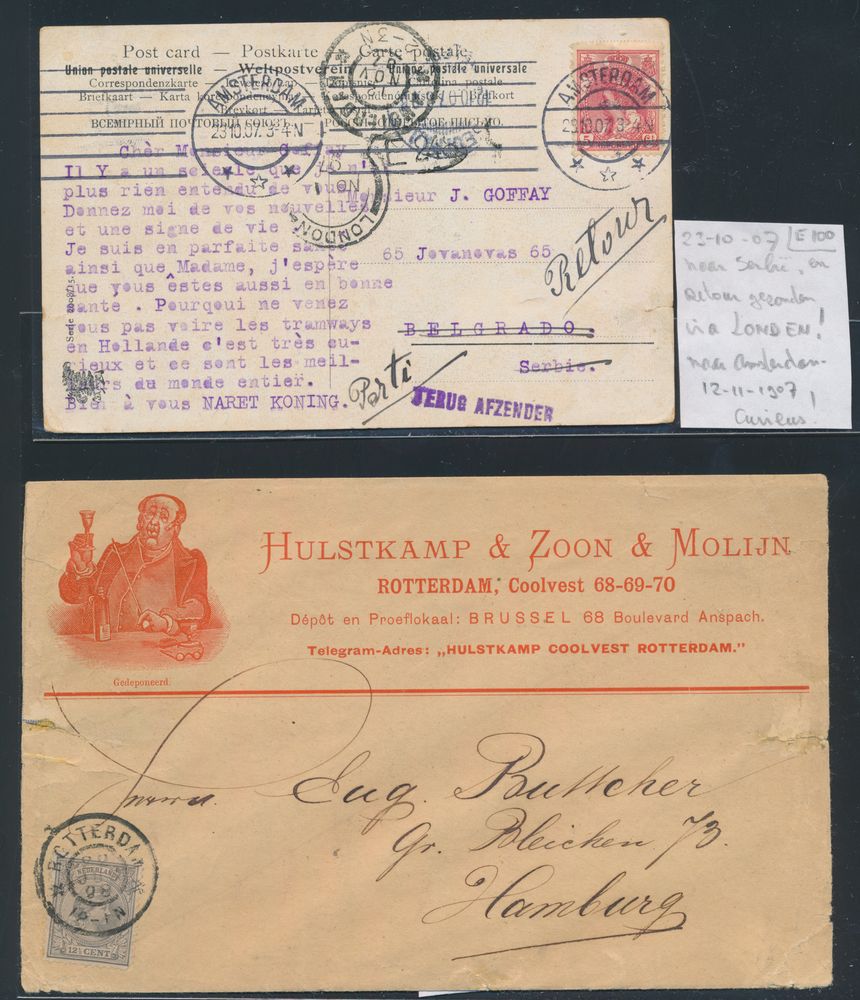 Post card — Postkarte — Carte postale
Union postale universelle — Weltpostverein — Unione postale universale
Correspondenzkarte
Briefkaart — Karta korespondencyjna
ВСЕМІРНЫЙ ПОЧТОВЫЙ СОЮЗЪ. ОТКРЫТОЕ ПИСЬМО.
AMSTERDAM
23.10.07. 3-4N
AMSTERDAM
23.10.07. 3-4N
LONDON
NO 1
07
Chèr Monsieur Goffay
Il Y a un que je n'
plus rien entendu de vous
Donnez moi de vos nouvelles
et une signe de vie
Je suis en parfaite santé
ainsi que Madame, j'espère
que vous êstes aussi en bonne
santé . Pourqoui ne venez
vous pas voire les tramways
en Hollande c'est très cu-
rieux et ce sont les meil-
leurs du monde entier.
Bien à vous NARET KONING.
Monsieur J. GOFFAY
65 Jovanovas 65
BELGRADO.
Serbie.
Retour
Parti
TERUG AFZENDER
23-10-07 E 100
naar Servië, en
retour gezonden
via LONDEN!
naar Amsterdam
12-11-1907
Curieus!
HULSTKAMP & ZOON & MOLIJN
ROTTERDAM, Coolvest 68-69-70
Dépôt en Proeflokaal: BRUSSEL 68 Boulevard Anspach.
Telegram-Adres: „HULSTKAMP COOLVEST ROTTERDAM."
Gedeponeerd.
Herrn
Eug. Buttcher
Gr. Bleichen 73.
Hamburg
ROTTERDAM
98
NEDERLAND
12½ CENT